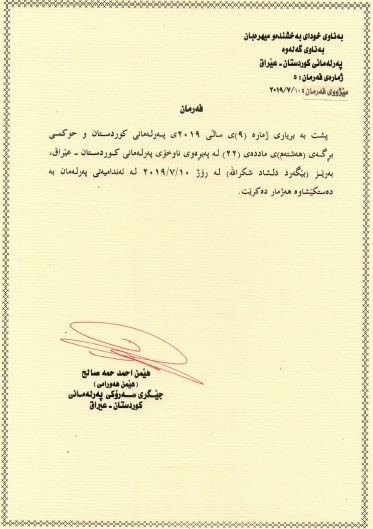 بەناوی خودای بەخشندەو میهرەبان
بەناوی گەلەوە
پەرلەمانی کوردستان - عێراق
ژمارەی فەرمان: ٥
مێژووی فەرمان: ٢٠١٩/٧/١٠
فەرمان
پشت بە بڕیاری ژمارە (٩)ی ساڵی ٢٠١٩ی پەرلەمانی کوردستان و حوکمی
بڕگەی (هەشتەم)ی ماددەی (٢٢) لە پەیڕەوی ناوخۆی پەرلەمانی کوردستان - عێراق،
بەڕێز (بێگەرد دلشاد شکراللە) لە ڕۆژ ٢٠١٩/٧/١٠ لە ئەندامیەتی پەرلەمان بە
دەستکێشاوە هەژمار دەکرێت.
هێمن احمد حمە صالح
(هێمن هەورامی)
جێگری سەرۆکی پەرلەمانی
کوردستان - عیراق